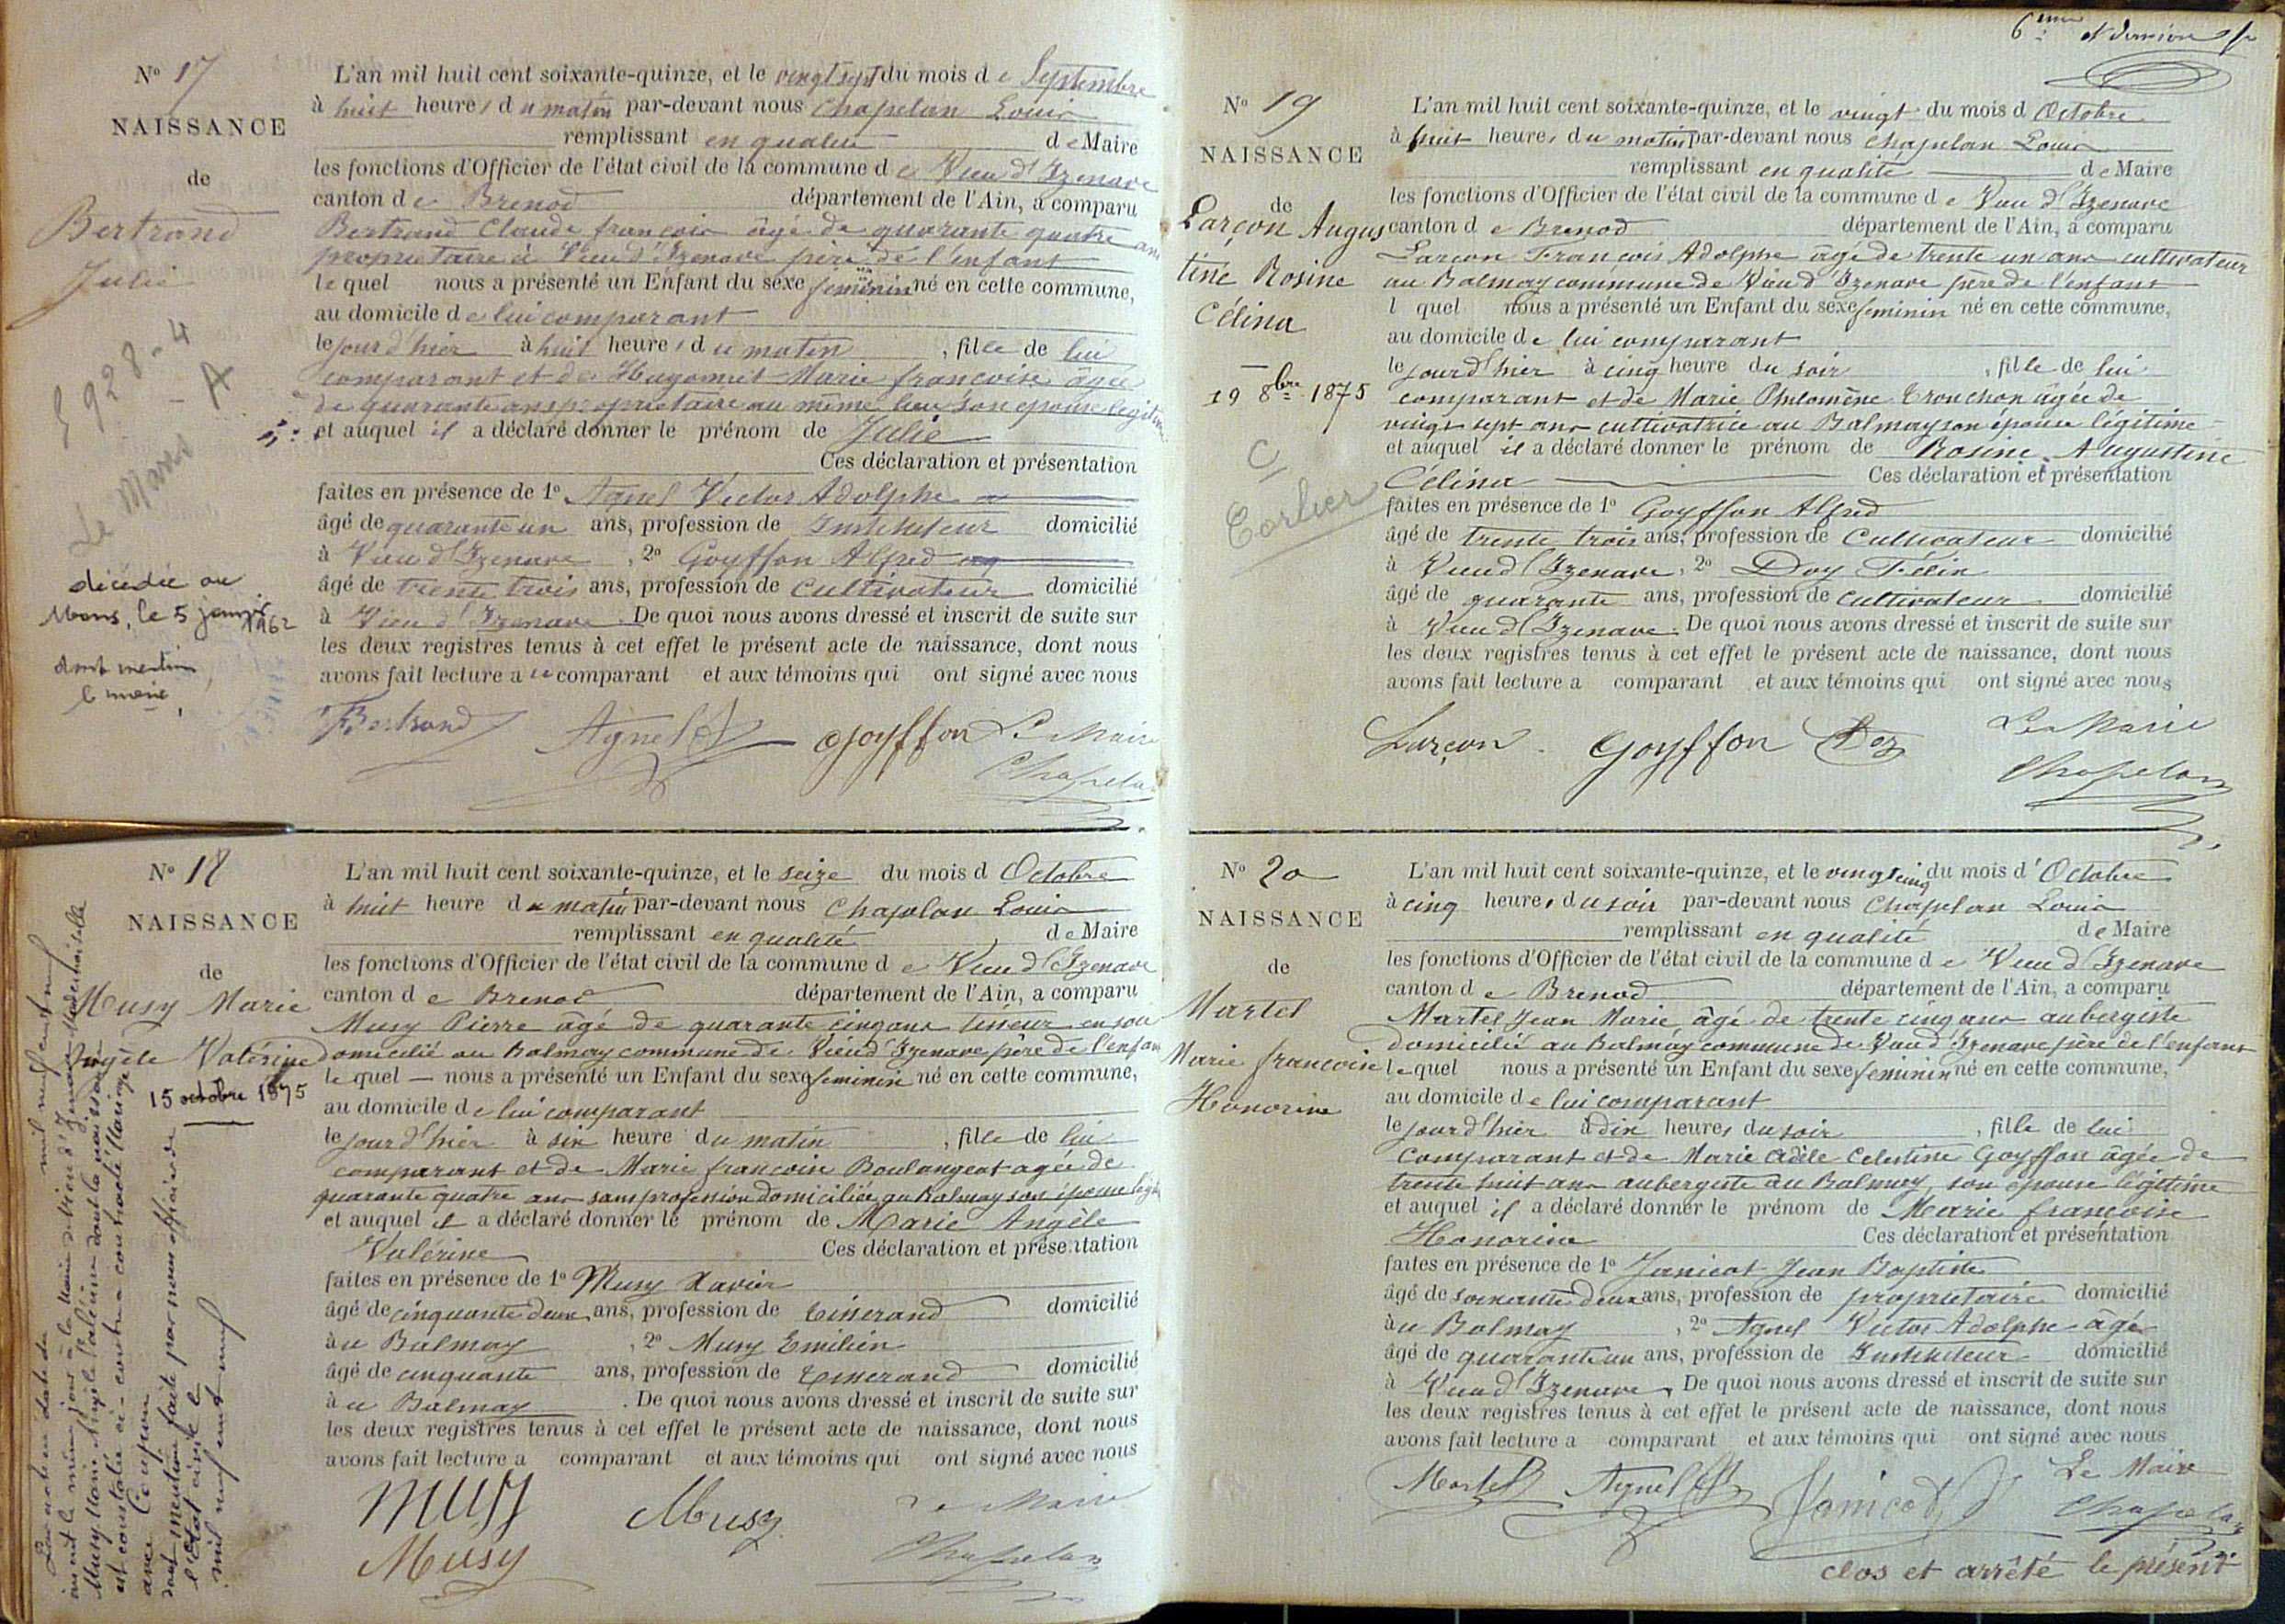 N° 17
NAISSANCE
de
Bertrand
Julie
décédée au
Mans, le 5 janvier
1962
dont mention
le maire,
L'an mil huit cent soixante-quinze, et le vingt sept du mois de Septembre
à huit heures du matin par-devant nous Chapelan Louis
remplissant en qualité de Maire
les fonctions d'Officier de l'état civil de la commune de Vieu d'Izenave
canton de Brenod département de l'Ain, a comparu
Bertrand Claude françois âgé de quarante quatre ans
propriétaire à Vieu d'Izenave père de l'enfant
lequel nous a présenté un Enfant du sexe féminin né en cette commune,
au domicile de lui comparant
le jour d'hier à huit heures du matin, fille de lui
comparant et de Hugonnet Marie françoise âgée
de quarante ans propriétaire au même lieu son épouse légitime
et auquel il a déclaré donner le prénom de Julie
Ces déclaration et présentation
faites en présence de 1° Agnel Victor Adolphe
âgé de quarante un ans, profession de Instituteur domicilié
à Vieu d'Izenave, 2° Goyffon Alfred
âgé de trente trois ans, profession de Cultivateur domicilié
à Vieu d'Izenave. De quoi nous avons dressé et inscrit de suite sur
les deux registres tenus à cet effet le présent acte de naissance, dont nous
avons fait lecture au comparant et aux témoins qui ont signé avec nous
Bertrand Agnel Goyffon Le Maire
Chapelan
N° 18
NAISSANCE
de
Musy Marie
Angèle Valérine
15 octobre 1875
L'an mil huit cent soixante-quinze, et le seize du mois d Octobre
à huit heure du matin par-devant nous Chapelan Louis
remplissant en qualité de Maire
les fonctions d'Officier de l'état civil de la commune de Vieu d'Izenave
canton de Brenod département de l'Ain, a comparu
Musy Pierre âgé de quarante cinq ans tisseur en soie
domicilié au Balmay commune de Vieu d'Izenave père de l'enfant
lequel — nous a présenté un Enfant du sexe féminin né en cette commune,
au domicile de lui comparant
le jour d'hier à six heure du matin, fille de lui
comparant et de Marie françoise Boulangeot agée de
quarante quatre ans sans profession domiciliée au Balmay son épouse légit
et auquel il a déclaré donner le prénom de Marie Angèle
Valérine Ces déclaration et présentation
faites en présence de 1° Musy Xavier
âgé de cinquante deux ans, profession de tisserand domicilié
au Balmay, 2° Musy Emilien
âgé de cinquante ans, profession de tisserand domicilié
au Balmay. De quoi nous avons dressé et inscrit de suite sur
les deux registres tenus à cet effet le présent acte de naissance, dont nous
avons fait lecture a comparant et aux témoins qui ont signé avec nous
Musy Musy Le Maire
Musy Chapelan
Par acte en date du mil neuf cent neuf
inscrit le même jour à la Mairie de Vieu d'Izenave Mademoiselle
Musy Marie Angèle Valérine dont la naissance
est constatée ci-contre a contracté Mariage
avec
dont mention faite par nous officier de
l'état civil le
mil neuf cent neuf
6ème et dernière
N° 19
NAISSANCE
de
Larçon Augus
tine Rosine
Célina
19 8bre 1875
C
Corlier
L'an mil huit cent soixante-quinze, et le vingt du mois d Octobre
à huit heures du matin par-devant nous Chapelan Louis
remplissant en qualité de Maire
les fonctions d'Officier de l'état civil de la commune de Vieu d'Izenave
canton de Brenod département de l'Ain, a comparu
Larçon François Adolphe âgé de trente un ans cultivateur
au Balmay commune de Vieu d'Izenave père de l'enfant
l quel nous a présenté un Enfant du sexe féminin né en cette commune,
au domicile de lui comparant
le jour d'hier à cinq heure du soir, fille de lui
comparant et de Marie Philomène Tronchon âgée de
vingt sept ans cultivatrice au Balmay son épouse légitime
et auquel il a déclaré donner le prénom de Rosine Augustine
Célina Ces déclaration et présentation
faites en présence de 1° Goyffon Alfred
âgé de trente trois ans, profession de Cultivateur domicilié
à Vieu d'Izenave, 2° Doy Félix
âgé de quarante ans, profession de cultivateur domicilié
à Vieu d'Izenave. De quoi nous avons dressé et inscrit de suite sur
les deux registres tenus à cet effet le présent acte de naissance, dont nous
avons fait lecture a comparant et aux témoins qui ont signé avec nous
Larçon. Goyffon Doy Le Maire
Chapelan
N° 20
NAISSANCE
de
Martel
Marie françoise
Honorine
L'an mil huit cent soixante-quinze, et le vingt cinq du mois d'Octobre
à cinq heures du soir par-devant nous Chapelan Louis
remplissant en qualité de Maire
les fonctions d'Officier de l'état civil de la commune de Vieu d'Izenave
canton de Brenod département de l'Ain, a comparu
Martel Jean Marie âgé de trente cinq ans aubergiste
domicilié au Balmay commune de Vieu d'Izenave père de l'enfant
lequel nous a présenté un Enfant du sexe féminin né en cette commune,
au domicile de lui comparant
le jour d'hier à dix heures du soir, fille de lui
comparant et de Marie Adèle Celestine Goyffon âgée de
trente huit ans aubergiste au Balmay, son épouse légitime
et auquel il a déclaré donner le prénom de Marie françoise
Honorine Ces déclaration et présentation
faites en présence de 1° Janicot Jean Baptiste
âgé de soixante deux ans, profession de propriétaire domicilié
au Balmay, 2° Agnel Victor Adolphe âgé
âgé de quarante un ans, profession de Instituteur domicilié
à Vieu d'Izenave. De quoi nous avons dressé et inscrit de suite sur
les deux registres tenus à cet effet le présent acte de naissance, dont nous
avons fait lecture a comparant et aux témoins qui ont signé avec nous
Martel Agnel Janicot Le Maire
Chapelan
clos et arrêté le présent